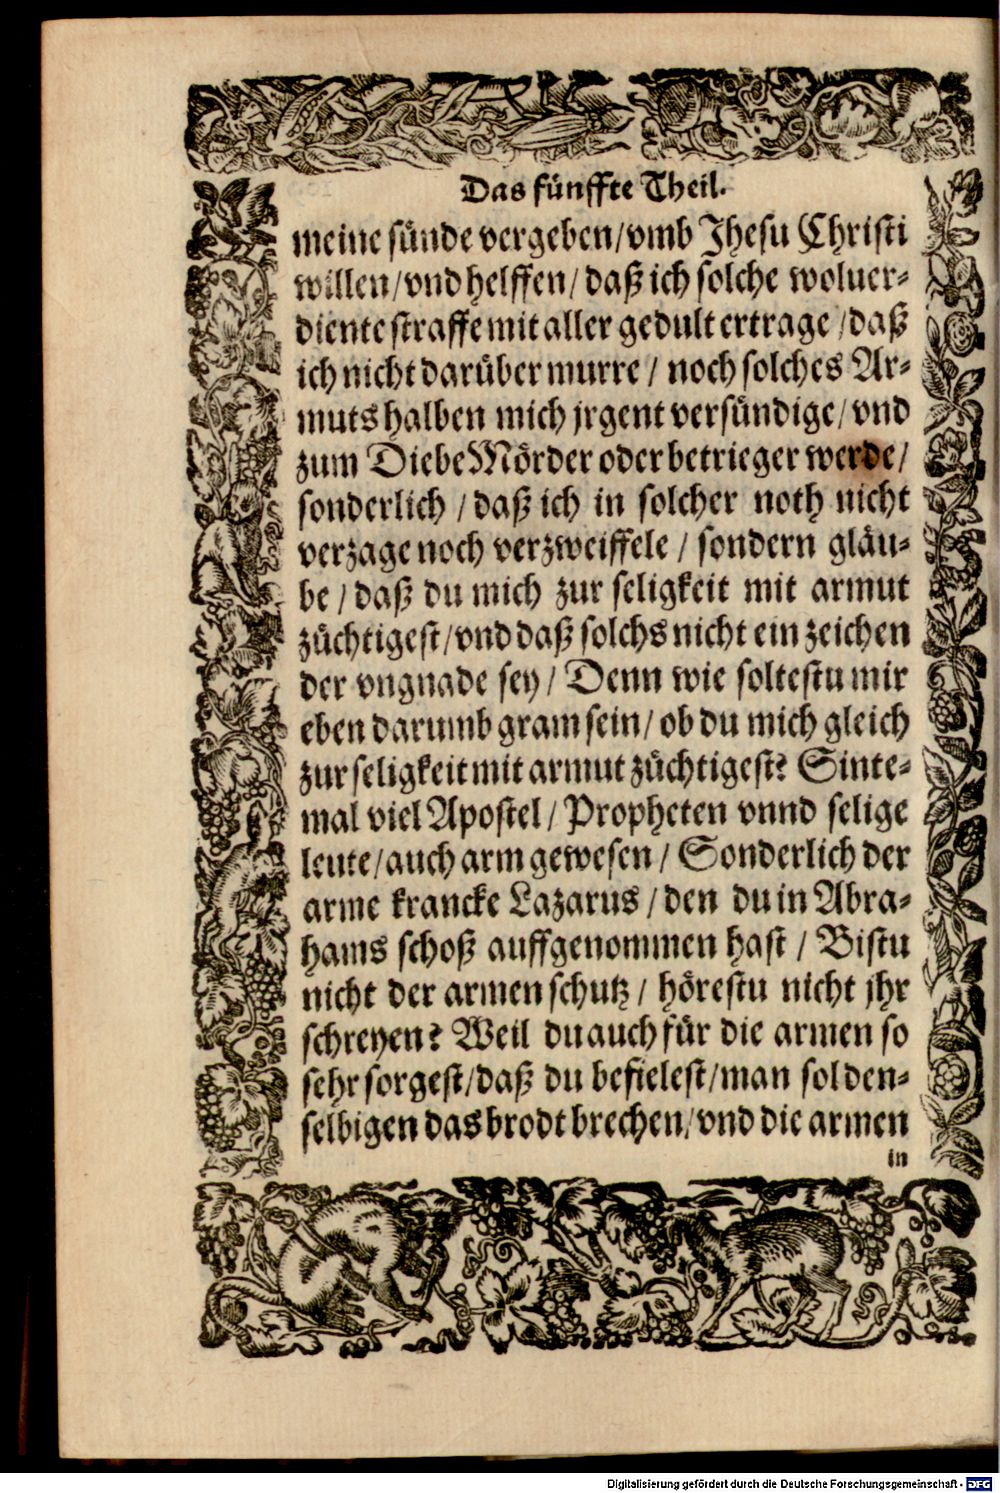 Das fünffte Theil.
meine sünde vergeben/vmb Jhesu Christi
willen/vnd helffen/ daß ich solche woluer-
diente straffe mit aller gedult ertrage /daß
ich nicht darüber murre / noch solches Ar-
muts halben mich jrgent versündige/ vnd
zum Diebe Mörder oder betrieger werde/
sonderlich / daß ich in solcher noth nicht
verzage noch verzweiffele / sondern gläu-
be / daß du mich zur seligkeit mit armut
züchtigest/vnd daß solchs nicht ein zeichen
der vngnade sey/ Denn wie soltestu mir
eben darumb gram sein/ ob du mich gleich
zur seligkeit mit armut züchtigest? Sinte-
mal viel Apostel/ Propheten vnnd selige
leute/auch arm gewesen/ Sonderlich der
arme krancke Lazarus /den du in Abra-
hams schoß auffgenommen hast / Bistu
nicht der armen schutz/ hörestu nicht jhr
schreyen? Weil du auch für die armen so
sehr sorgest/daß du befielest/man sol den-
selbigen das brodt brechen/vnd die armen
in
Digitalisierung gefördert durch die Deutsche Forschungsgemeinschaft - DFG